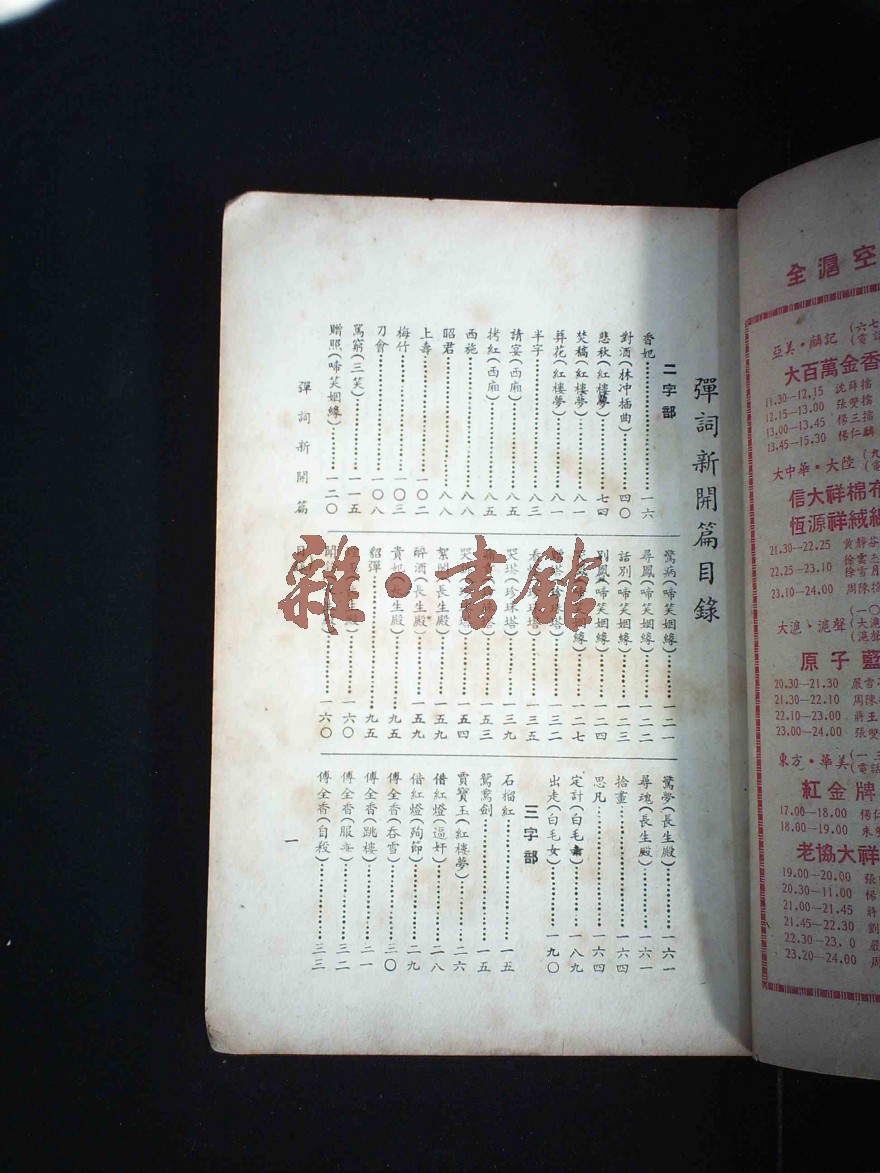 彈詞新開篇目錄
二字部
香妃 一六
對酒(林冲插曲) 四〇
悲秋(紅樓夢) 七四
焚稿(紅樓夢) 八一
葬花(紅樓夢) 八一
半字 八三
請宴(西廂) 八五
拷紅(西廂) 八五
西施 八八
昭君 八八
上壽 一〇二
梅竹 一〇三
刀會 一〇八
罵窮(三笑) 一一五
贈照(啼笑姻緣) 一二〇
驚病(啼笑姻緣) 一二一
尋鳳(啼笑姻緣) 一二二
話別(啼笑姻緣) 一二三
別鳳(啼笑姻緣) 一二四
一二七
一三二
一三五
哭塔(珍珠塔) 一三九
一五三
一五四
絮閣(長生殿) 一五九
醉酒(長生殿) 一五九
貴妃(長生殿) 九五
貂彈 九五
一六〇
一六〇
驚夢(長生殿) 一六一
尋魂(長生殿) 一六一
拾畫 一六四
思凡 一六四
定計(白毛女) 一八九
出走(白毛女) 一九〇
三字部
石榴紅 一五
鴛鴦劍 一五
賈寶玉(紅樓夢) 二六
借紅燈(逼奸) 二八
借紅燈(殉節) 二九
傅全香(吞雪) 三〇
傅全香(跳樓) 二一
傅全香(服毒) 三二
傅全香(自殺) 三三
彈詞新開篇 目
一
雜·書館
全滬空
亞美·麟記
(六七
(電話
大百萬金香
11.30—12.15 沈薛檔
12.15—13.00 張雙檔
13.00—13.45 楊三檔
13.45—15.30 楊仁麟
大中華·大陸
(九
(電
信大祥棉布
恆源祥絨線
21.30—22.25 黃靜芬
22.25—23.10 徐雲
徐雪月
23.10—24.00 周陳檔
大滬·滬聲
(一〇
(大滬
(滬聲
原子藍
20.30—21.30 嚴雪
21.30—22.10 周陳
22.10—23.00 蔣王
23.00—24.00 張雙
東方·華美
(一三
(電話
紅金牌
17.00—18.00 楊仁
18.00—19.00 朱
老協大祥
19.00—20.00 張
20.30—11.00 楊
21.00—21.45 蔣
21.45—22.30 劉
22.30—23. 0 嚴
23.20—24.00 周